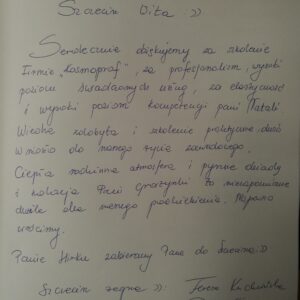 Szczecin Wita :)).
Serdecznie dziękujemy za szkolenie
firmie "Kosmopraf", za profesjonalizm, wysoki
poziom świadczonych usług, za elastyczność
i wysoki poziom kompetencji pani Natalii.
Wiedza zdobyta i szkolenie praktyczne dużo
wniosło do mojego życia zawodowego.
Ciepła rodzinna atmosfera i pyszne obiady
i kolacja Pani Grażynki to niezapomniane
chwile dla mojego podniebienia. Na pewno
wrócimy.
Panie Mirku zabieramy Pana do Szczecina :))
Szczecin żegna :)). Teresa